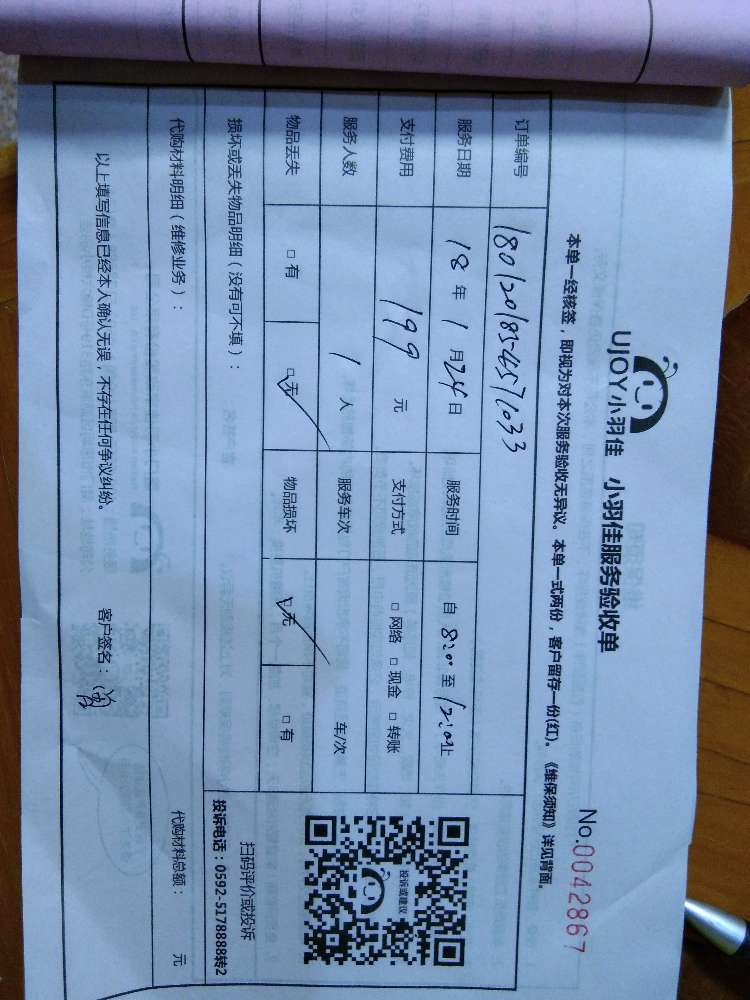 UJOY小羽佳 小羽佳服务验收单
No.0042867
本单一经核签，即视为对本次服务验收无异议。本单一式两份，客户留存一份(红)。《维保须知》详见背面。
订单编号 180120185457033
服务日期 18 年 1 月 24 日 服务时间 自 8:00 至 12:00止
支付费用 199 元 支付方式 □ 网络 □ 现金 □ 转账
服务人数 1 人 服务车次 车/次
物品丢失 □ 有 □ 无 物品损坏 □ 无 □ 有
投诉或建议
扫码评价或投诉
投诉电话：0592-5178888转2
损坏或丢失物品明细（没有可不填）：
代购材料明细（维修业务）： 代购材料总额： 元
以上填写信息已经本人确认无误，不存在任何争议纠纷。 客户签名：